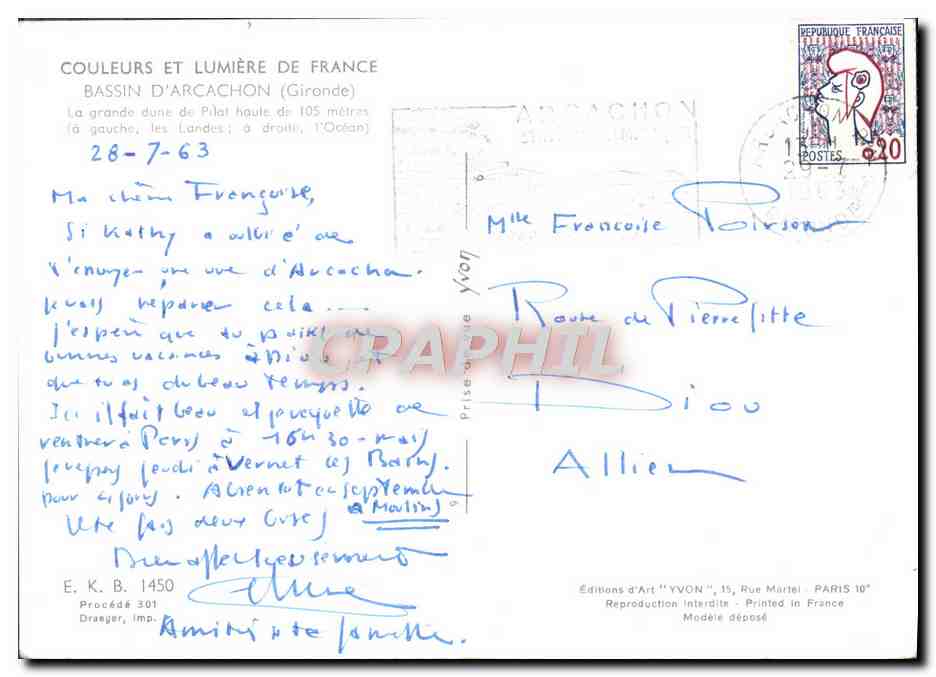 COULEURS ET LUMIÈRE DE FRANCE
BASSIN D'ARCACHON (Gironde)
La grande dune de Pilat haute de 105 mètres
(à gauche, les Landes ; à droite, l'Océan)
28-7-63
Ma chère Françoise,
Si Kathy a oublié de
t'envoyer une vue d'Arcachon.
je vais réparer cela ....
j'espère que tu passes de
bonnes vacances à Diou et
que tu as du beau temps.
Ici il fait beau et je regrette de
rentrer à Paris à 16h30 - mais
je repars jeudi à Vernet les Bains.
pour 21 jours. A bientôt en septembre
à Moulins
Je te fais deux bises
Bien affectueusement
Amitiés à ta famille.
E. K. B. 1450
Procédé 301
Draeger, imp.
Prise de vue Yvon
6
ARCACHON
REPUBLIQUE FRANÇAISE
POSTES 0,20
ARCACHON
13H
29-7
1963
Mlle Francoise Poirson
Route de Pierrefitte
Diou
Allier
CPRAPHIL
Éditions d'Art "YVON", 15, Rue Martel - PARIS 10e
Reproduction Interdite - Printed in France
Modèle déposé